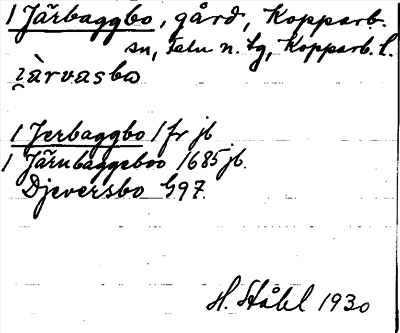 1 Järbaggbo, gård, Kopparb.
sn, Falu n. tg, Kopparb. l.
i̯àrvasbo
1 Jerbaggbo 1/fr jb
1 Järnbaggeboo 1685 jb.
Djeversbo G97.
H. Ståhl 1930